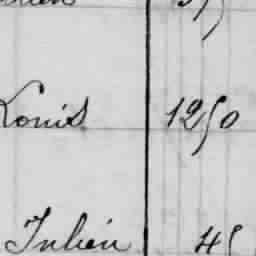 Louis 1250
Julien 45